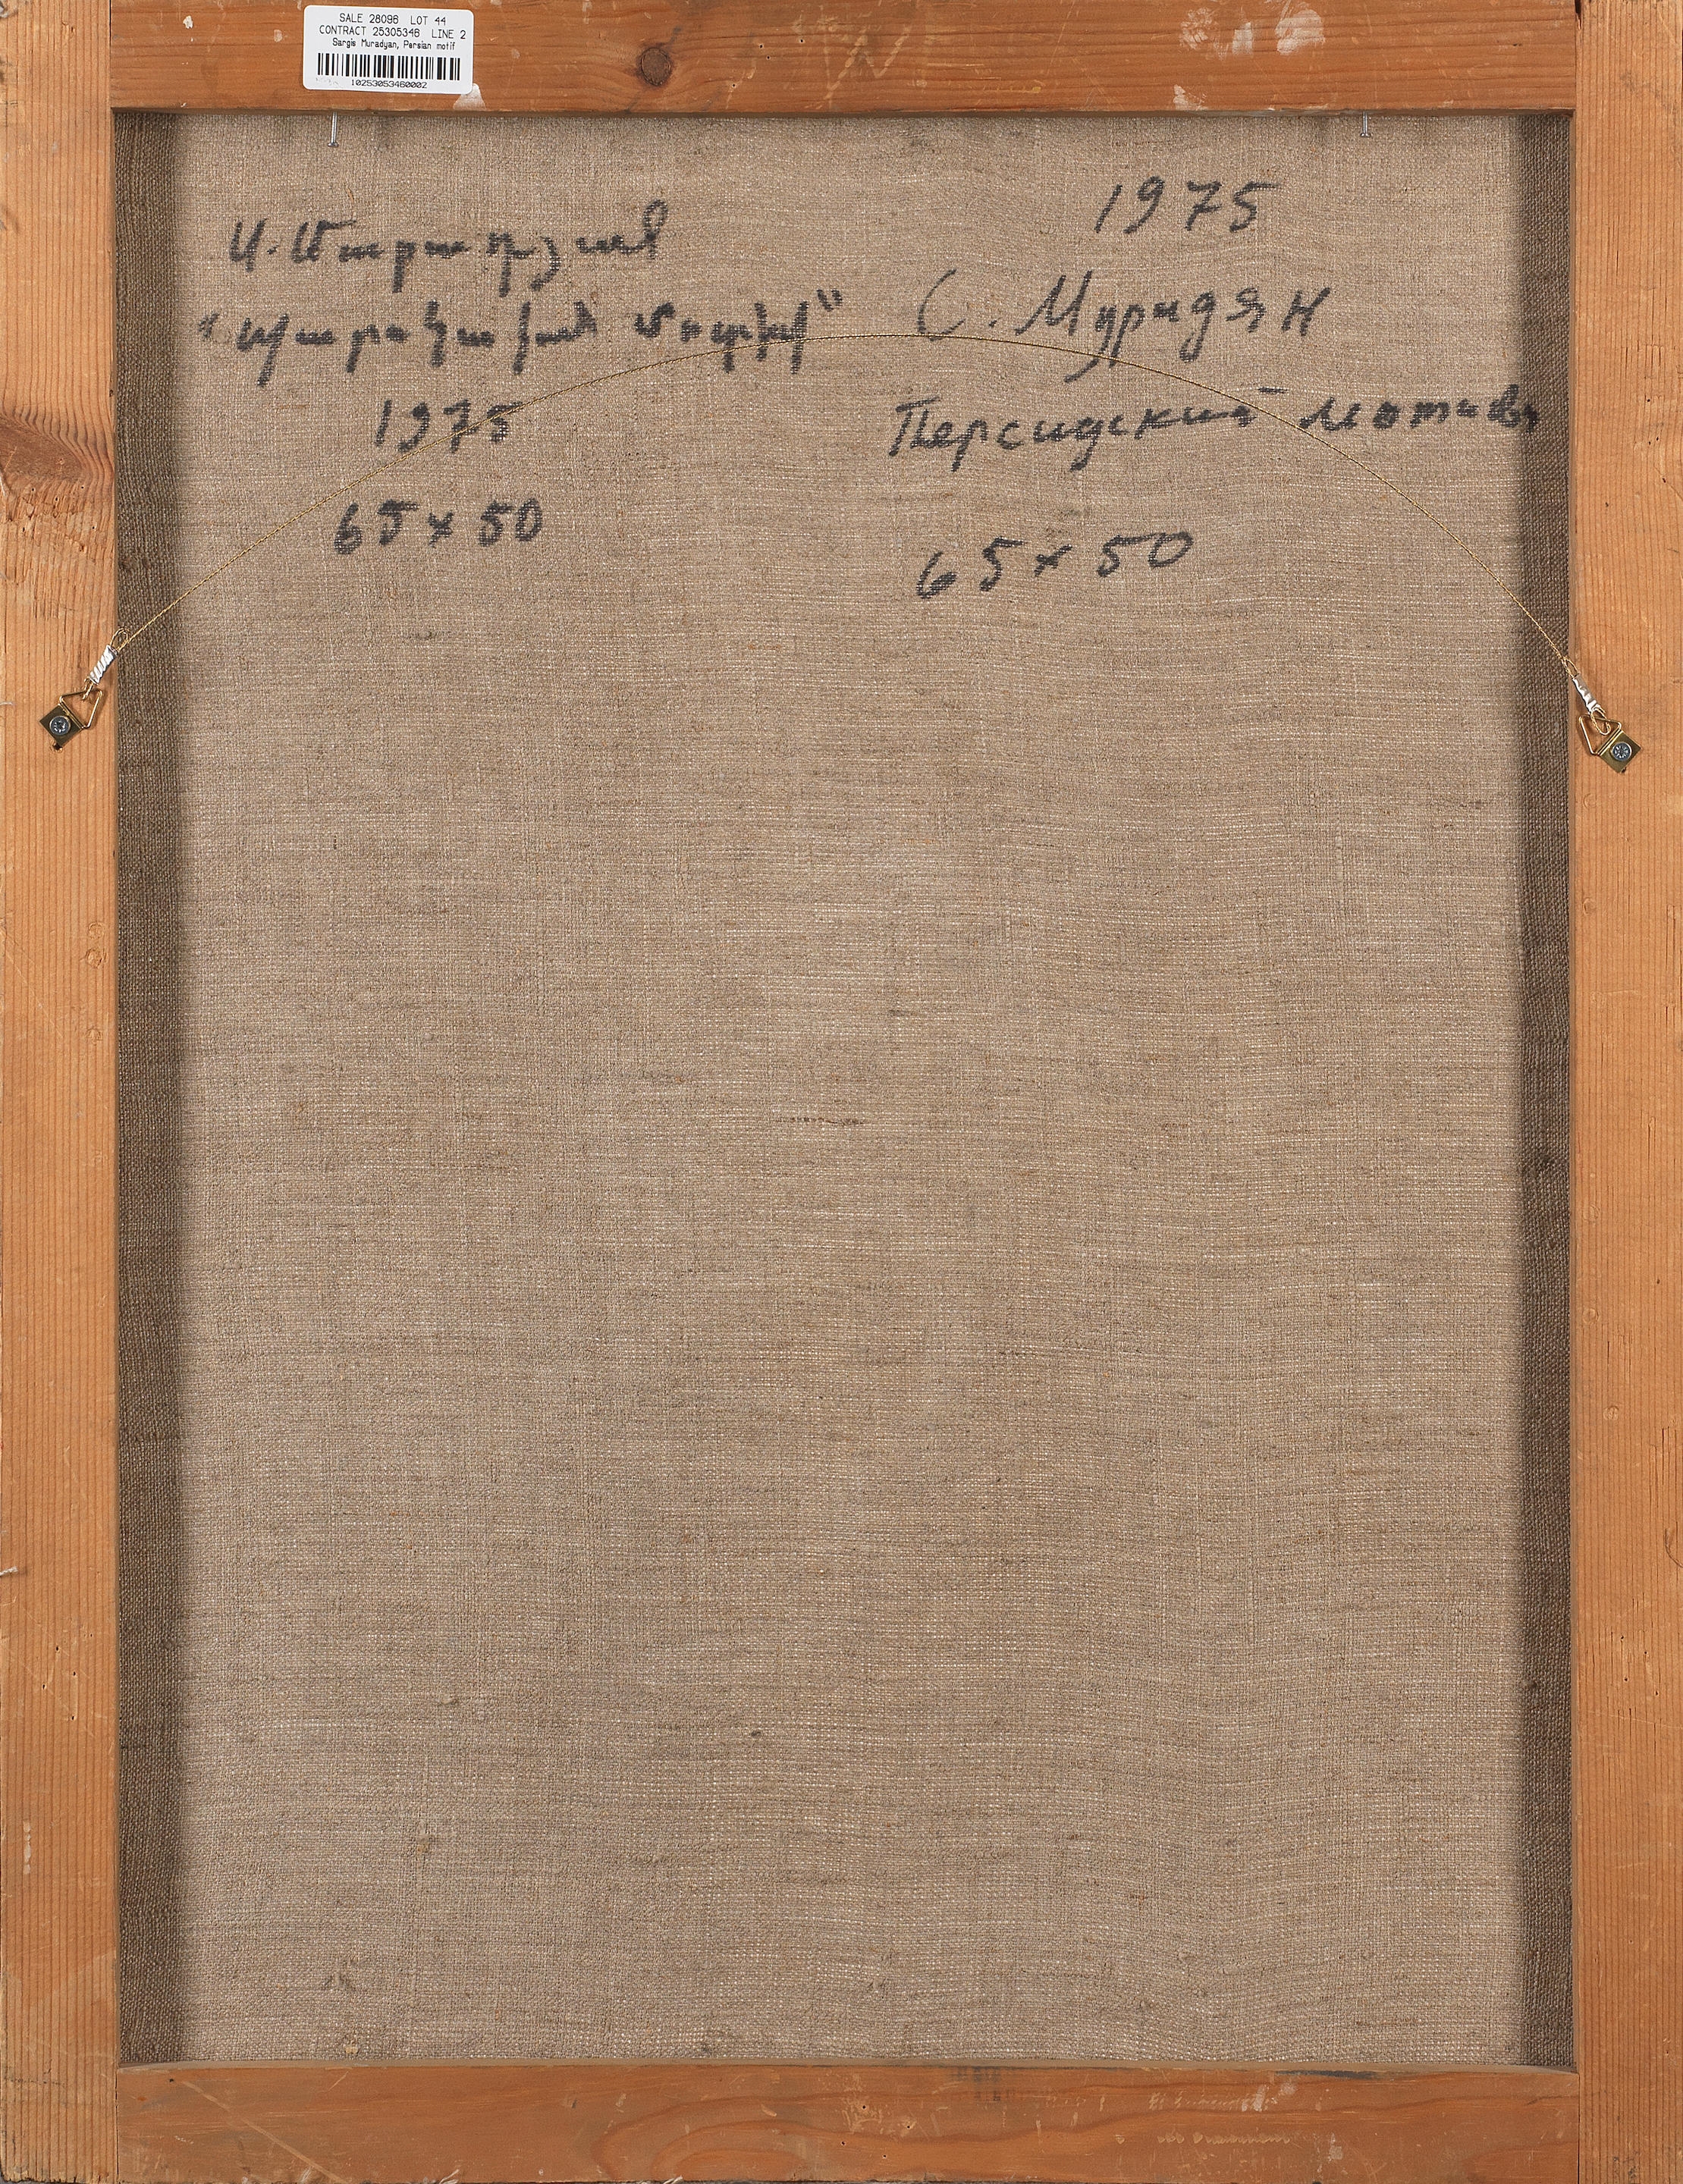 SALE 28096 LOT 44
CONTRACT 25305346 LINE 2
Sargis Muradyan, Persian motif
10253053460002
Ս. Մուրադյան
"Պարսկական մոտիվ"
1975
65x50
1975
С. Мурадян
Персидский мотив
65x50